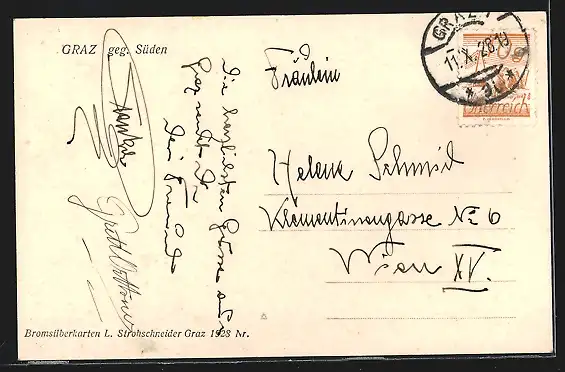 GRAZ geg. Süden
Die herzlichsten Grüsse aus
Graz sendet Dir
Dein Freund
Fräulein
Helene Schmid
Klementinengasse No 6
Wien XV.
GRAZ 1
11.X.28 19
Österreich
Bromsilberkarten L. Strohschneider Graz 1928 Nr.